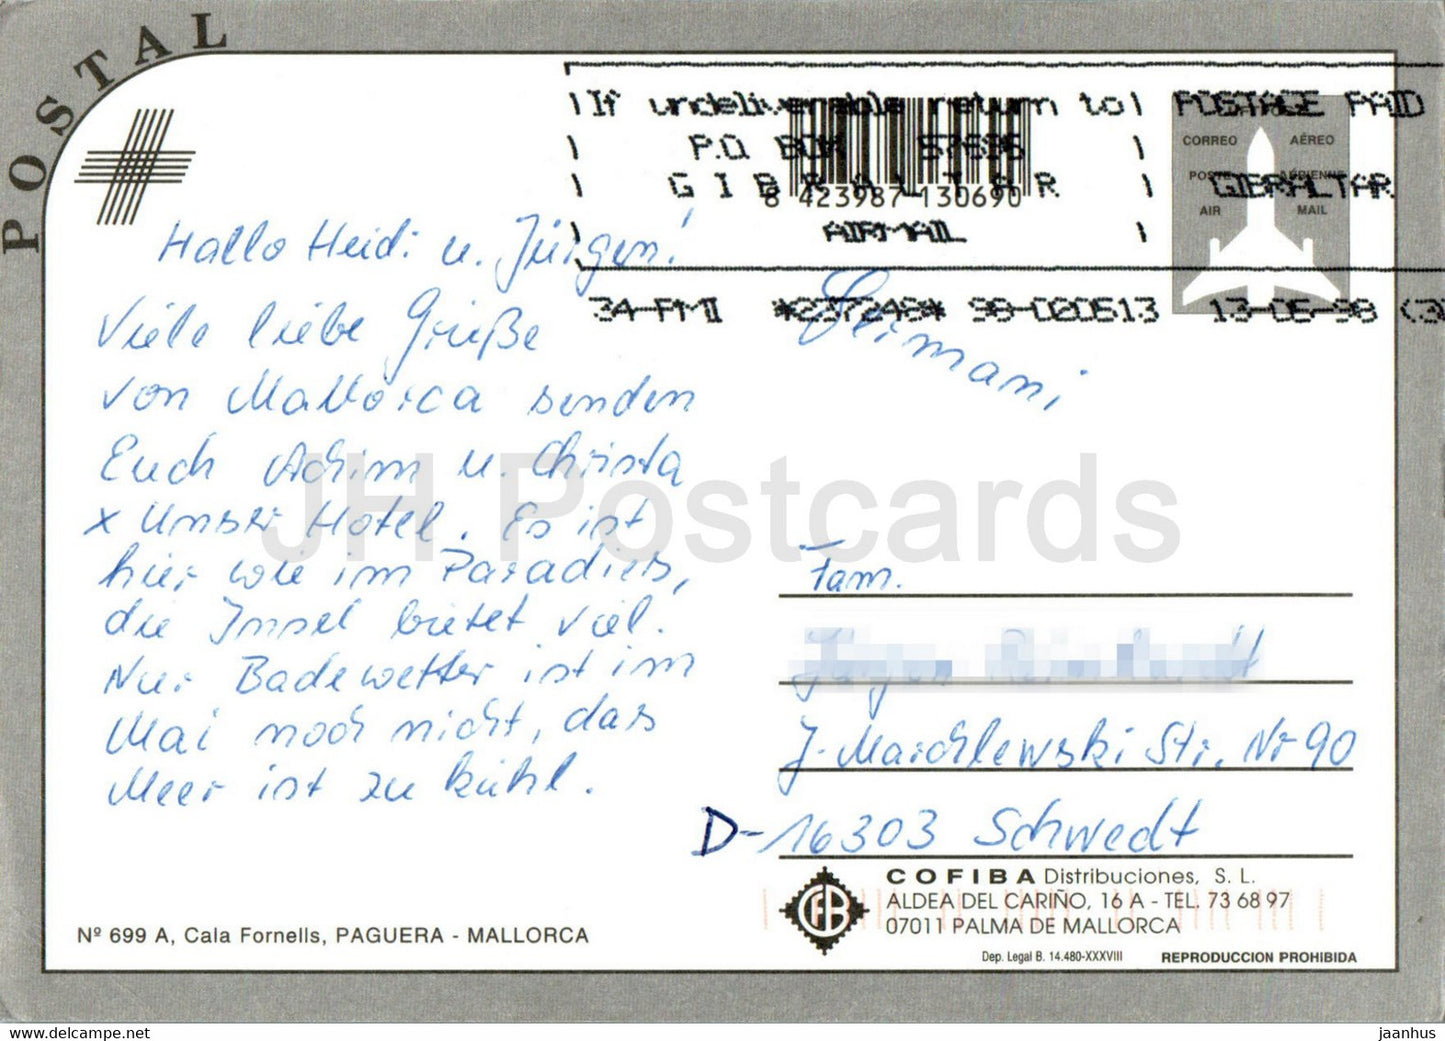 POSTAL
If undeliverable return to POSTAGE PAID
P.O. BOX 57685
GIBRALTAR GIBRALTAR
AIRMAIL
34-PMI *237248* 98-020513 13-05-98
8 423987 130690
CORREO AÉREO
POSTE AÉRIENNE
AIR MAIL
Hallo Heidi u. Jürgen!
Viele liebe Grüße
von Mallorca senden
Euch Achim u. Christa
x Unser Hotel. Es ist
hier wie im Paradies,
die Insel bietet viel.
Nur Badewetter ist im
Mai noch nicht, das
Meer ist zu kühl.
Germani
Fam.
J. Marchlewski Str. Nr 90
D-16303 Schwedt
COFIBA Distribuciones, S. L.
ALDEA DEL CARIÑO, 16 A - TEL. 73 68 97
07011 PALMA DE MALLORCA
Dep. Legal B. 14.480-XXXVIII REPRODUCCION PROHIBIDA
Nº 699 A, Cala Fornells, PAGUERA - MALLORCA
JH Postcards
https://www.delcampe.net
jaanhus